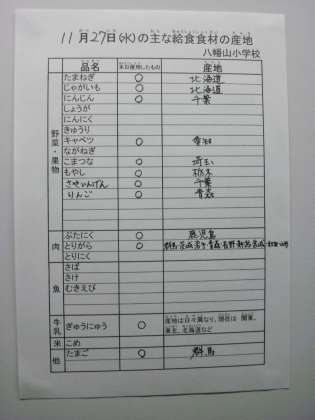 11月27日(水)の主な給食食材の産地
八幡山小学校
品名 本日使用したもの 産地
野菜・果物
たまねぎ ○ 北海道
じゃがいも ○ 北海道
にんじん ○ 千葉
しょうが
にんにく
きゅうり
キャベツ ○ 愛知
ながねぎ
こまつな ○ 埼玉
もやし ○ 栃木
さやいんげん ○ 千葉
りんご ○ 青森
肉
ぶたにく ○ 鹿児島
とりがら ○ 群馬・茨城・岩手・青森・長野・新潟・宮城
とりにく
魚
さば
さけ
むきえび
牛乳 ぎゅうにゅう ○ 産地は日々異なり、現在は 関東、
東北、北海道など
米 こめ
他 たまご ○ 群馬